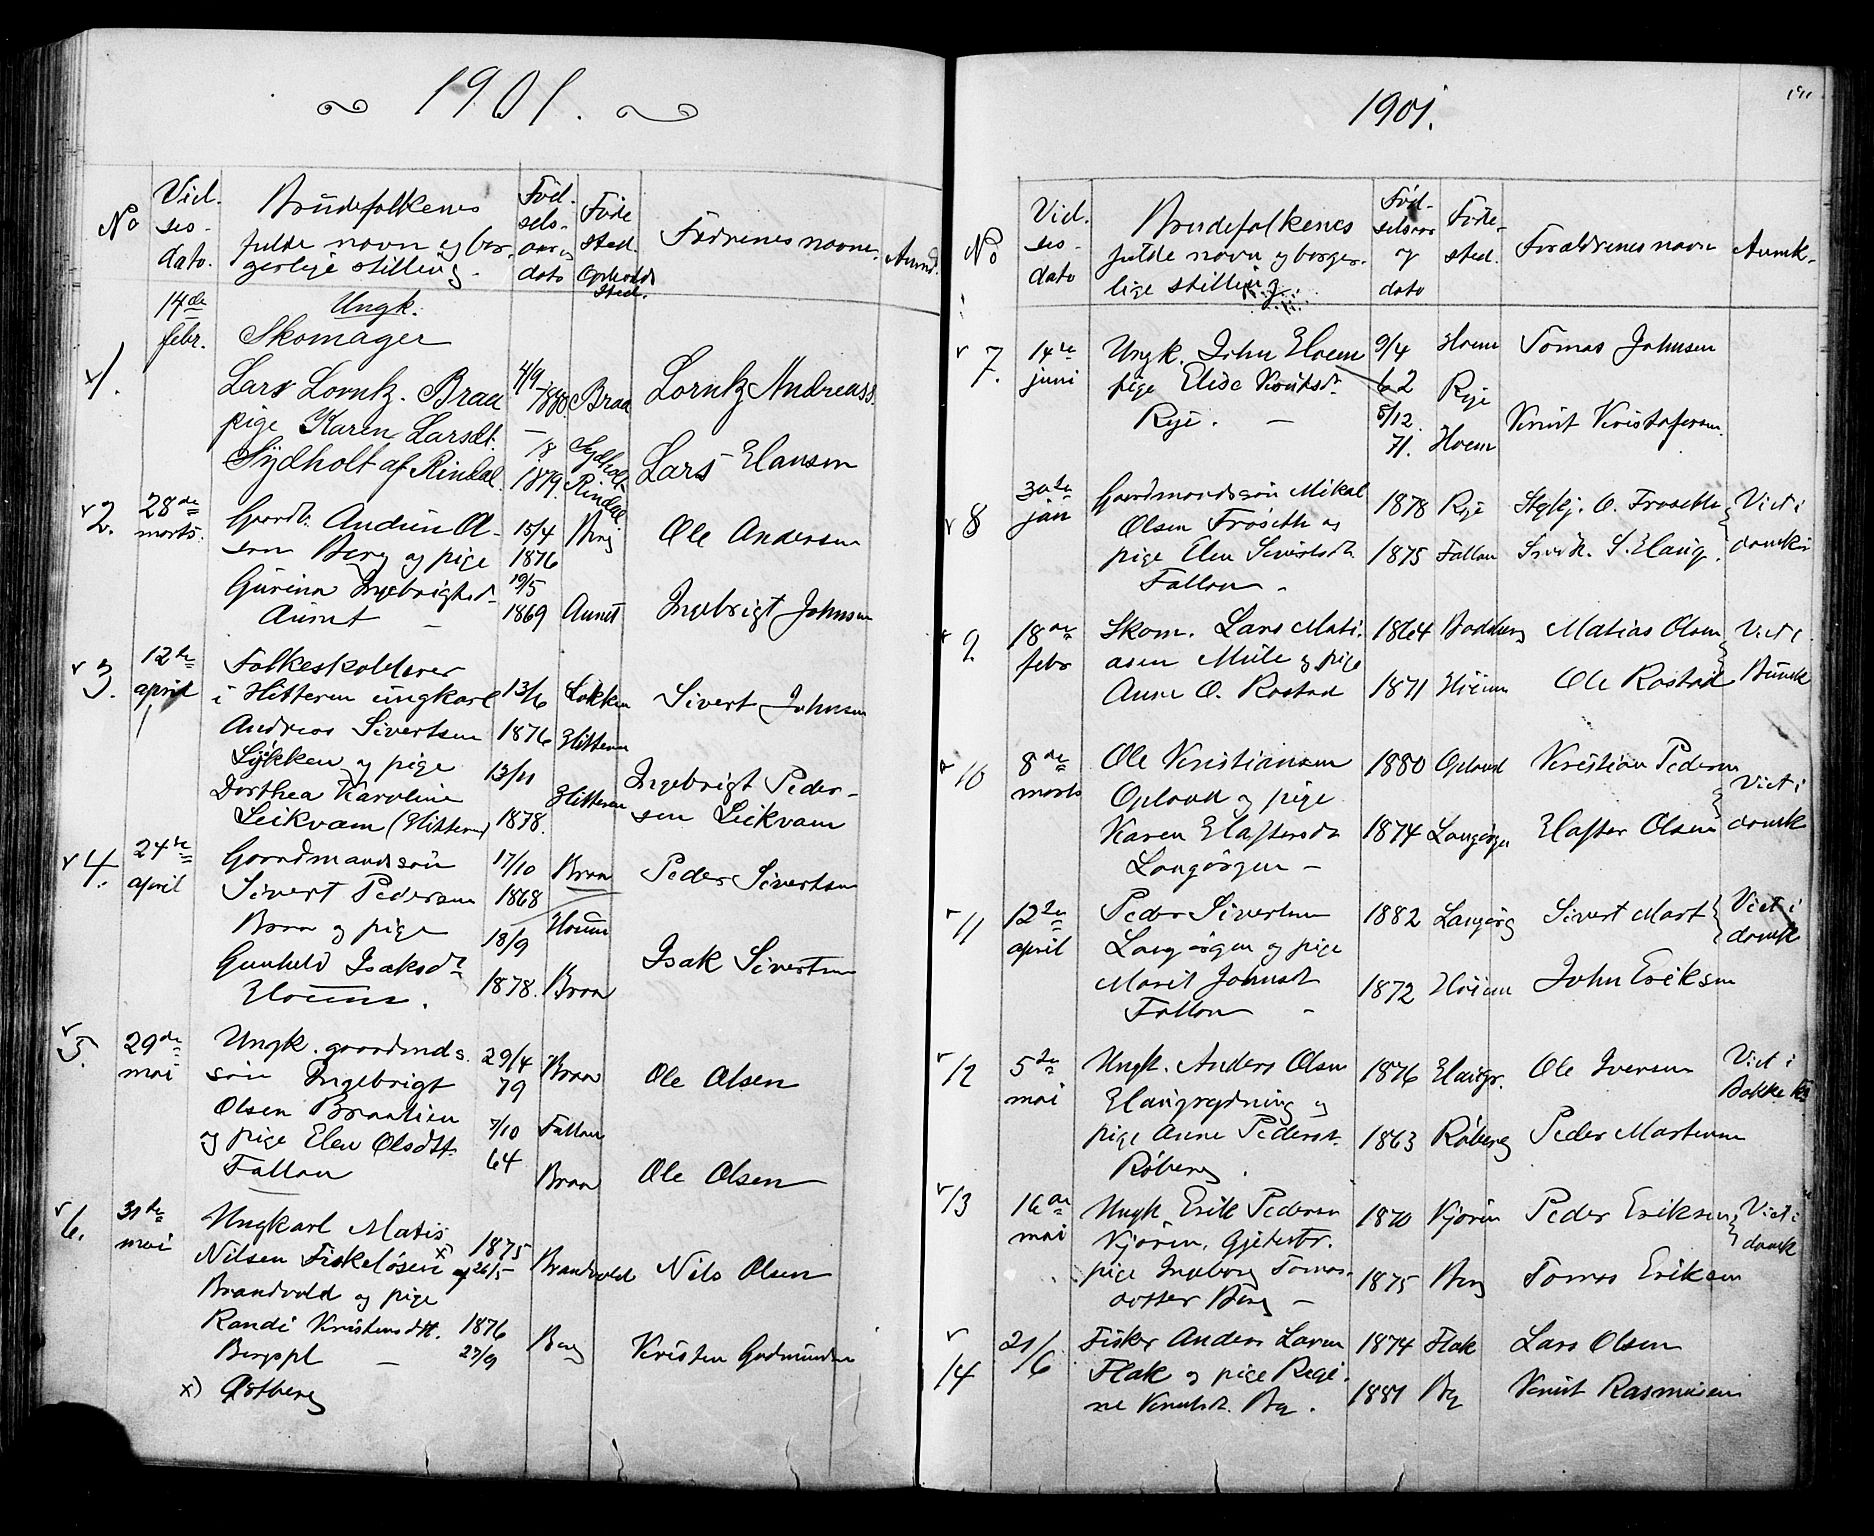 1901.
No
Vid.
ses-
dato.
Brudefolkenes
fulde navn og bor-
gerlige stilling.
Fød-
sels-
aar og
dato
Føde
sted.
Opholds
sted.
Fædrenes navne.
Anmk.
1.
14de
febr.
Ungk.
Skomager
Lars Lorntz. Braa
pige Karen Larsdt.
Sydholt af Rindal.
4/9
1880.
18
1879.
Braa
Sydholt
Rindal
Lorntz Andreass.
Lars Hansen
2.
28de
marts.
Gaardb. Anders Ol-
sen Berg og pige
Gurina Ingebrigtsd.
Aunet —
15/4
1876
19/5
1869
Berg
Aunet
Ole Andersen
Ingebrigt Johnsen
3.
12te
april
Folkeskolelærer
i Hitteren ungkarl
Andreas Sivertsen
Løkken og pige
Dorthea Karoline
Leikvam (Hitteren)
13/6
1876
13/11
1878.
Løkken
Hitteren
Hitteren
Sivert Johnsen
Ingebrigt Peder-
sen Leikvam
4.
24de
april
Gaardmandssøn
Sivert Pedersen
Braa og pige
Gunhild Isaksdt
Houm.
17/10
1868
18/9
1878.
Braa
Houm
Braa
Peder Sivertsen
Isak Sivertsen
5.
29de
mai
Ungk. gaardmds.
søn Ingebrigt
Olsen Braalien
og pige Elen Olsdtt.
Fallan
29/4
79
7/10
64
Braa
Fallan
Braa
Ole Olsen
Ole Olsen
6.
31te
mai
Ungkarl Matis
Nilsen Fiskeløsen x) af
Brandvold og pige
Randi Kristensdtt.
Bergspl —
x) Østberg
1875
26/5
1876
27/9
Brandvold
Berg
Nils Olsen
Kristen Gudmundsen
1901.
No
Vid.
ses-
dato
Brudefolkenes
fulde navn og borger-
lige stilling.
Fød-
selsaar
og
dato
Føde-
sted.
Forældrenes navn
Anmk.
7.
14de
juni
Ungk. John Hoem
pige Elide Knutsdt.
Rye. —
9/4
62
5/12
71.
Hoem
Rye
Hoem
Tomas Johnsen
Knut Kristofersen.
8
30te
jan
Gaardmandssøn Mikal
Olsen Frøseth og
pige Elen Sivertsdt.
Fallan -
1878
1875
Rye
Fallan
O. Frøseth
Vict i
domk.
9.
18de
febr
Skom. Lars Mati-
asen Mule og pige
Anne O. Rostad
1864
1871
Hoiem
Matias Olsen
Ole Rostad
Vict i
10
8de
marts
Ole Kristiansen
Opland og pige
Karen Hafstersdt
Langørgen —
1880
1874
Opland
Langørgen
Kristian Pedersen
Hafster Olsen
Vict i
domk
11
12te
april
Peder Sivertsen
Langørgen og pige
Marit Johnsdt.
Fallan -
1882
1872
Langørg
Høiem
Sivert Mart
John Eriksen
Vict i
domk
12
5te
mai
Ungk. Anders Olsen
Haugrydning og
pige Anne Pedersdt.
Røberg.
1876
1863
Haugr.
Røberg
Ole Iversen
Peder Martensen
Vict i
Bakke k
13
16de
mai
Ungk. Erik Pedersen
Kjøren, Gjetestr.
pige Ingeborg Tomas-
datter Berg —
1870
1875
Kjøren
Berg
Peder Eriksen
Tomas Eriksen
Vict i
domk
14
21/6
Fisker Anders Larsen
Flak og pige Regi-
ne Knutsdt. Bg.
1874
1881
Flak
Bg
Lars Olsen
Knut Rasmusen